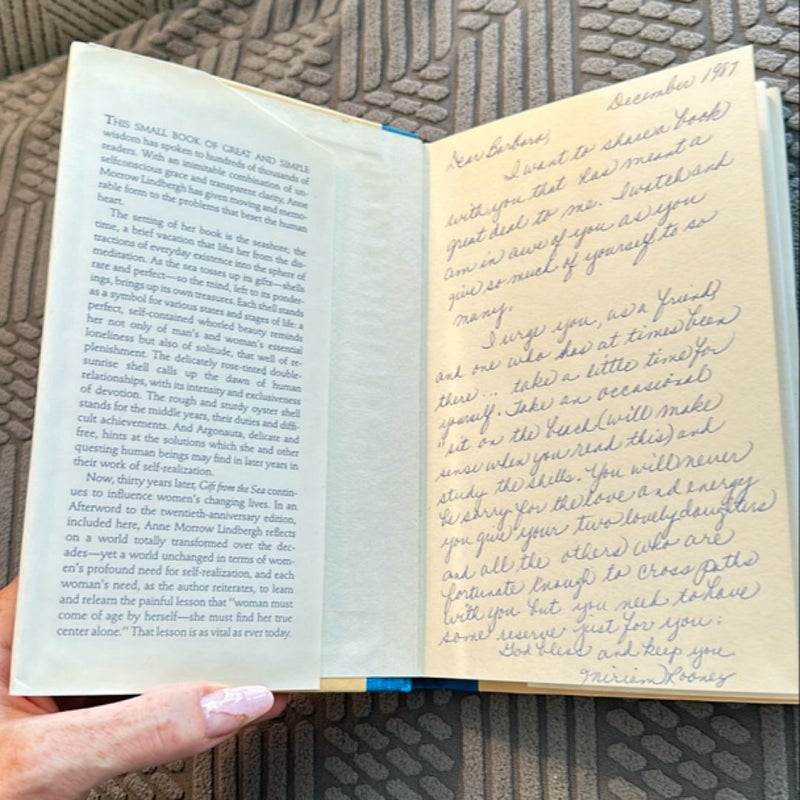 THIS SMALL BOOK OF GREAT AND SIMPLE
wisdom has spoken to hundreds of thousands of
readers. With an inimitable combination of un-
selfconscious grace and transparent clarity, Anne
Morrow Lindbergh has given moving and memo-
rable form to the problems that beset the human
heart.
The setting of her book is the seashore; the
time, a brief vacation that lifts her from the dis-
tractions of everyday existence into the sphere of
meditation. As the sea tosses up its gifts—shells
rare and perfect—so the mind, left to its ponder-
ings, brings up its own treasures. Each shell stands
as a symbol for various states and stages of life: a
perfect, self-contained whorled beauty reminds
her not only of man's and woman's essential
loneliness but also of solitude, that well of re-
plenishment. The delicately rose-tinted double-
sunrise shell calls up the dawn of human
relationships, with its intensity and exclusiveness
of devotion. The rough and sturdy oyster shell
stands for the middle years, their duties and diffi-
cult achievements. And Argonauta, delicate and
free, hints at the solutions which she and other
questing human beings may find in later years in
their work of self-realization.
Now, thirty years later, Gift from the Sea contin-
ues to influence women's changing lives. In an
Afterword to the twentieth-anniversary edition,
included here, Anne Morrow Lindbergh reflects
on a world totally transformed over the dec-
ades—yet a world unchanged in terms of wom-
en's profound need for self-realization, and each
woman's need, as the author reiterates, to learn
and relearn the painful lesson that "woman must
come of age by herself—she must find her true
center alone." That lesson is as vital as ever today.
December 1987
Dear Barbara,
I want to share a book
with you that has meant a
great deal to me. I watch and
am in awe of you as you
give so much of yourself to so
many.
I urge you, as a friend,
and one who has at times been
there... take a little time for
yourself. Take an occasional
"sit on the beach (will make
sense when you read this) and
study the shells. You will never
be sorry for the love and energy
you give your two lovely daughters
and all the others who are
fortunate enough to cross paths
with you but you need to have
some reserve just for you.
God bless and keep you
Miriam Rooney